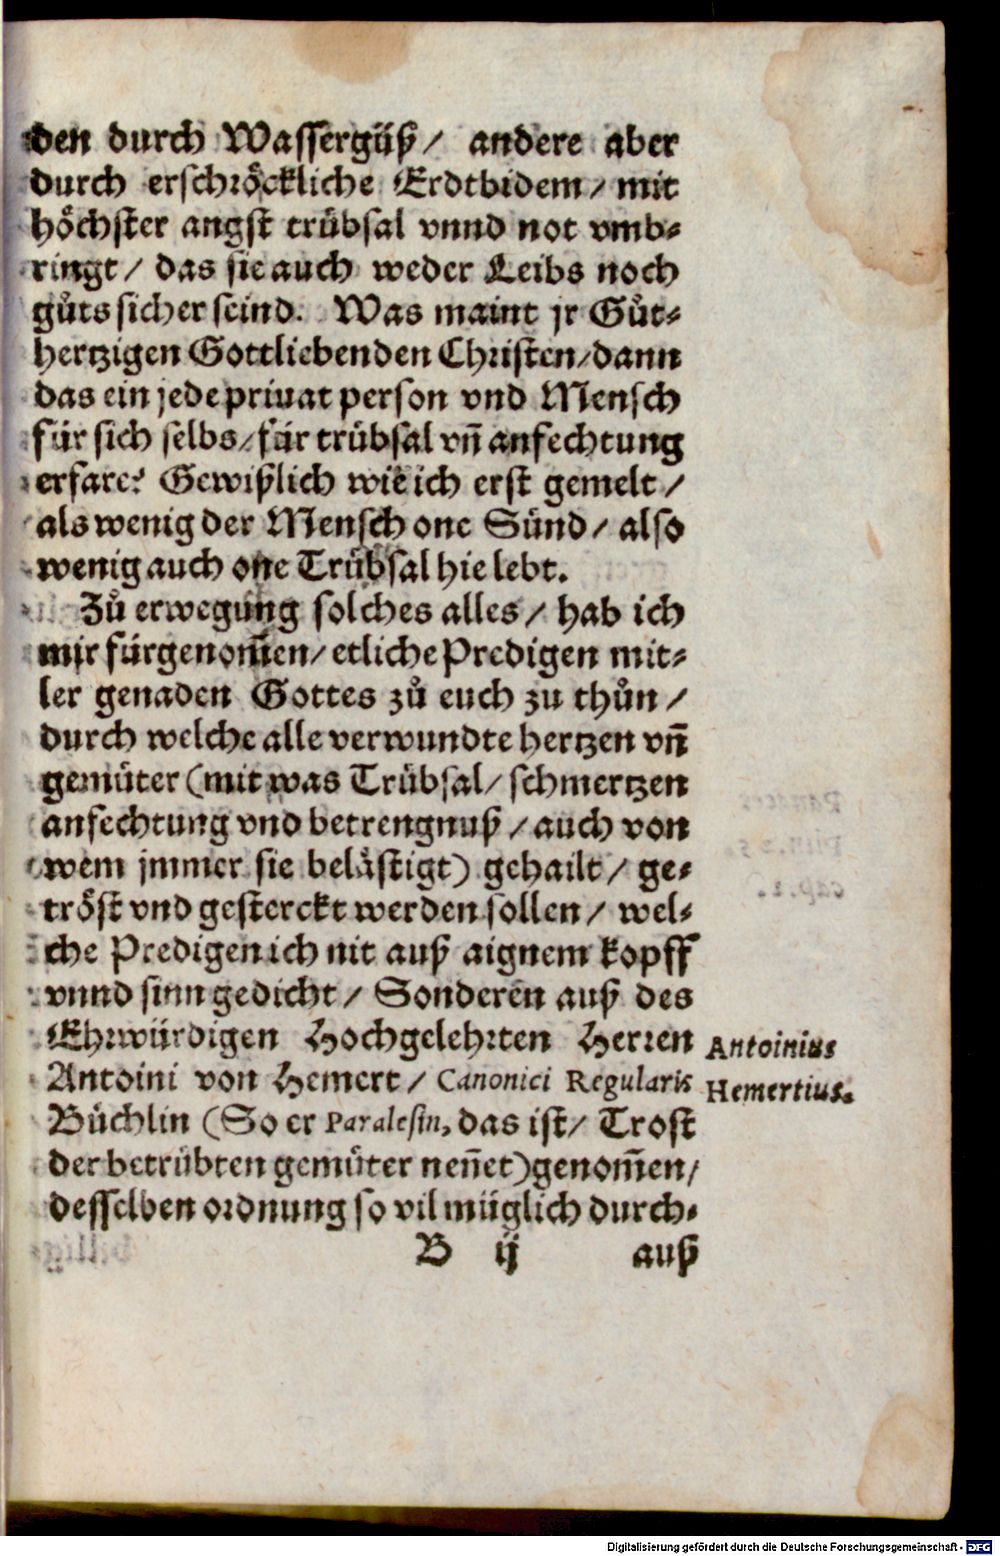 den durch Wassergüß/ andere aber
durch erschröckliche Erdtbidem/ mit
höchster angst trübsal vnnd not vmb⸗
ringt/ das sie auch weder Leibs noch
gůts sicher seind. Was maint jr Gůt⸗
hertzigen Gottliebenden Christen/dann
das ein jede priuat person vnd Mensch
für sich selbs/für trübsal vñ anfechtung
erfare? Gewißlich wie ich erst gemelt/
als wenig der Mensch one Sünd/ also
wenig auch one Trübsal hie lebt.
Zů erwegung solches alles/ hab ich
mir fürgenom̃en/ etliche Predigen mit⸗
ler genaden Gottes zů euch zu thůn/
durch welche alle verwundte hertzen vñ
gemüter (mit was Trübsal/ schmertzen
anfechtung vnd betrengnuß/ auch von
wem jmmer sie belästigt) gehailt/ ge⸗
tröst vnd gesterckt werden sollen/ wel⸗
che Predigen ich nit auß aignem kopff
vnnd sinn gedicht/ Sonderen auß des
Ehrwürdigen Hochgelehrten Herren
Antoinius
Antoini von Hemert/ Canonici Regularis
Hemertius.
Büchlin (So er Paralesin, das ist/ Trost
der betrübten gemüter neñet)genom̃en/
desselben ordnung so vil müglich durch⸗
B ij auß
Digitalisierung gefördert durch die Deutsche Forschungsgemeinschaft - DFG